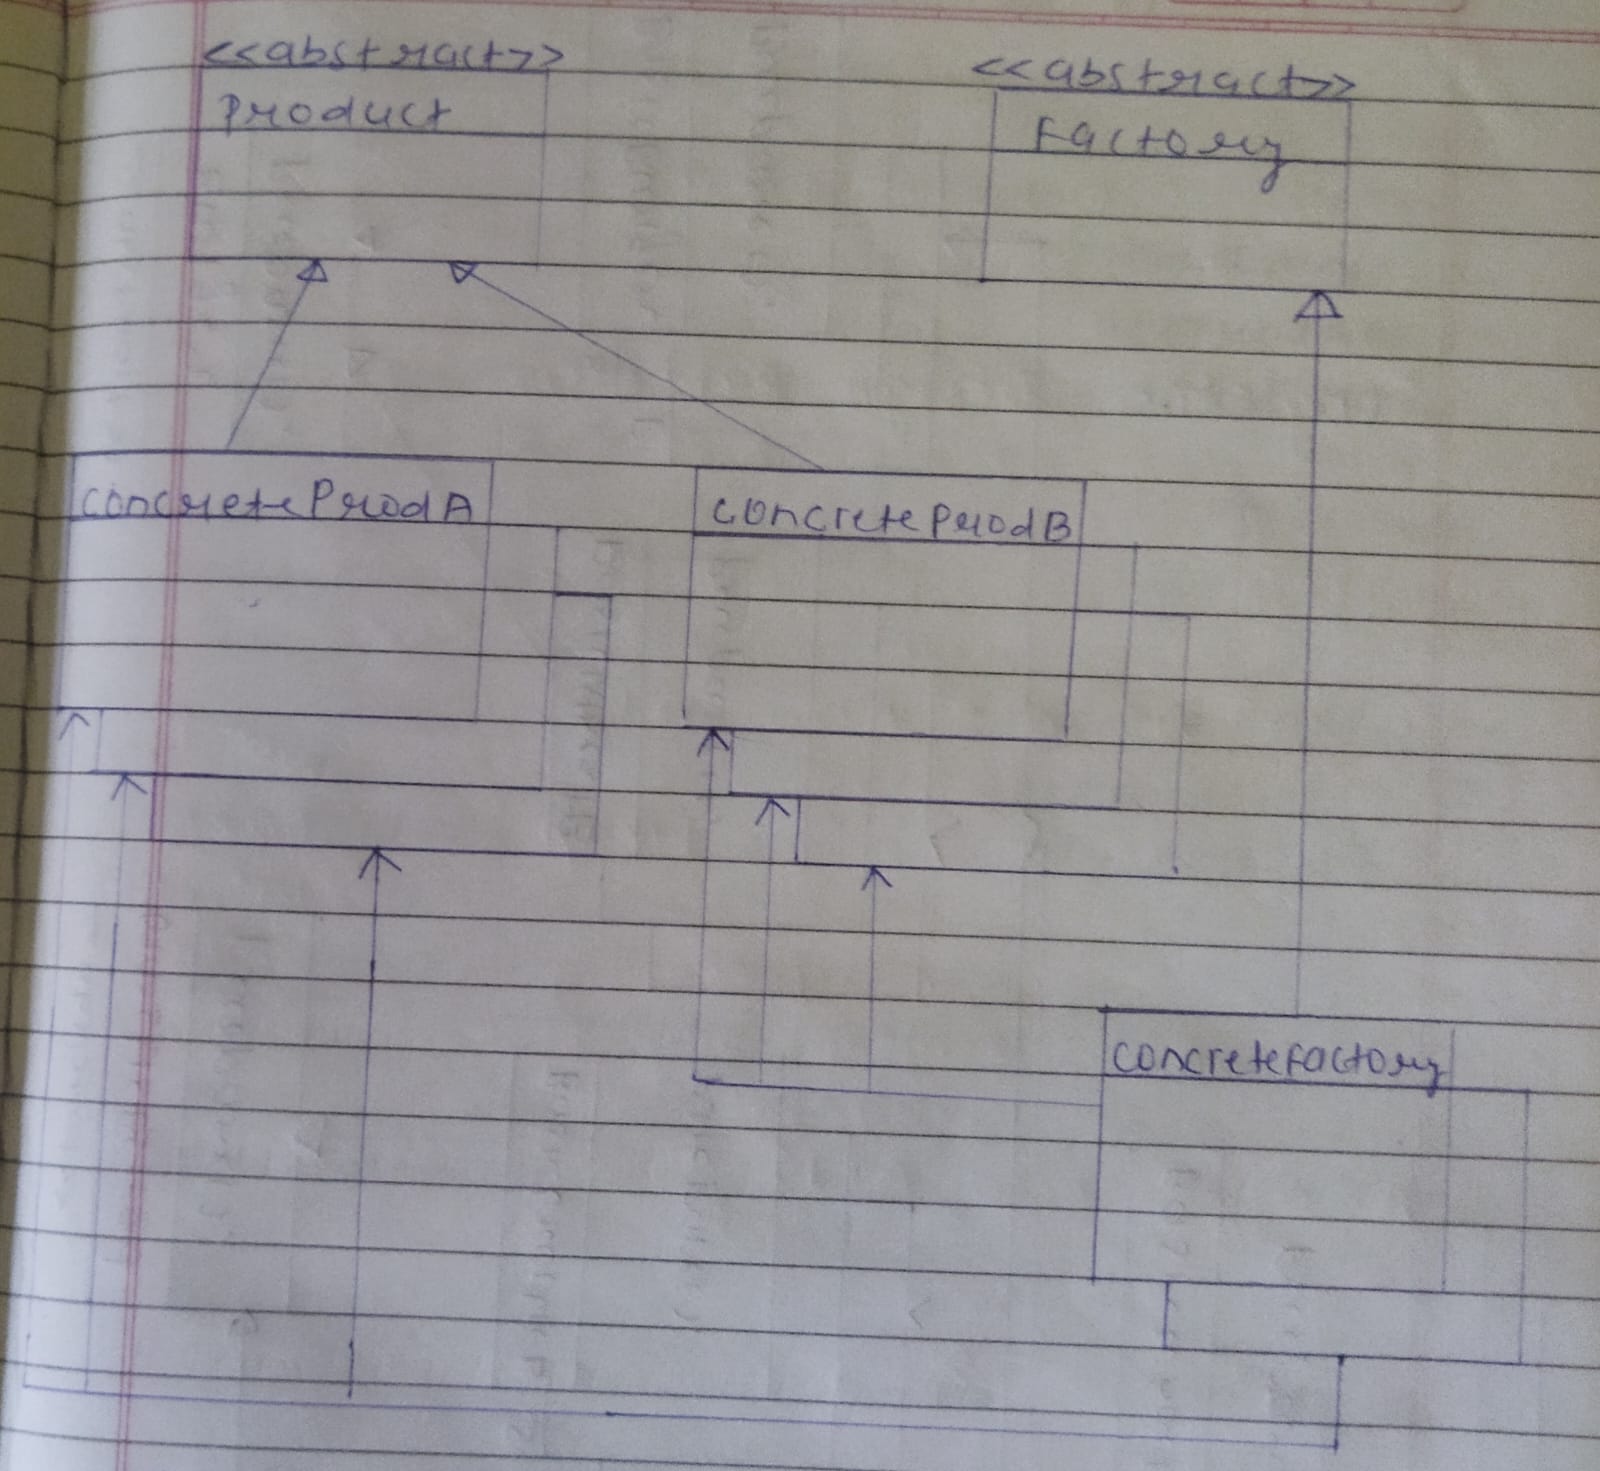 <<abstract>>
Product
<<abstract>>
Factory
ConcreteProdA
ConcreteProdB
ConcreteFactory